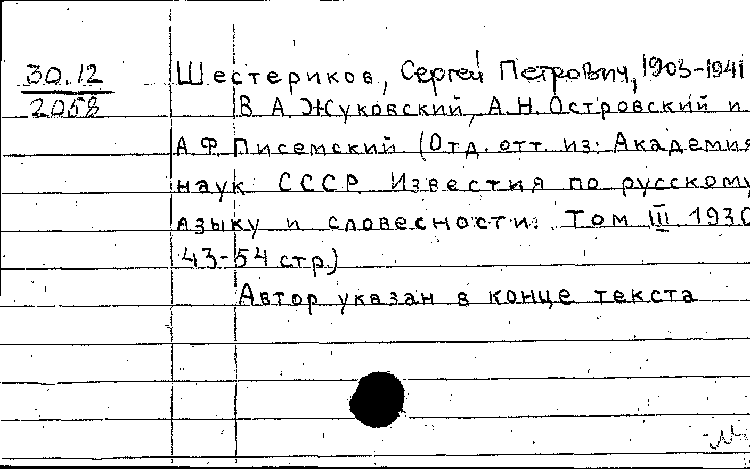 30.12
2058
Шестериков, Сергей Петрович, 1903-1941
В.А.Жуковский, А.Н.Островский и
А.Ф.Писемский (Отд. отт. из: Академия
наук СССР. Известия по русскому
языку и словесности. Том III 1930
43-54 стр.)
Автор указан в конце текста